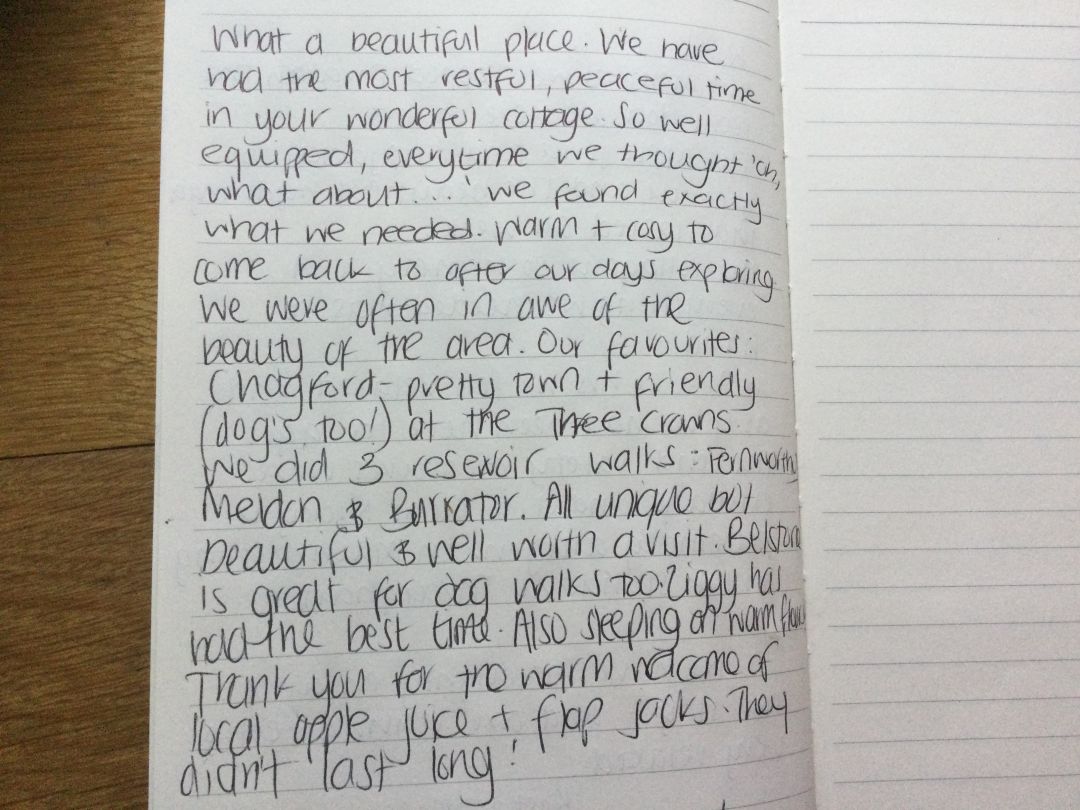 What a beautiful place. We have
had the most restful, peaceful time
in your wonderful cottage. So well
equipped, everytime we thought 'oh,
what about...' we found exactly
what we needed. Warm + cosy to
come back to after our days exploring
We were often in awe of the
beauty of the area. Our favourites:
Chagford - pretty town + friendly
(dog's too!) at the Three Crowns.
We did 3 resevoir walks: Fernworthy
Meldon & Burrator. All unique but
beautiful & well worth a visit. Belstone
is great for dog walks too. Ziggy has
had the best time. Also sleeping on warm floors
Thank you for the warm welcome of
local apple juice + flap jacks. They
didn't last long!